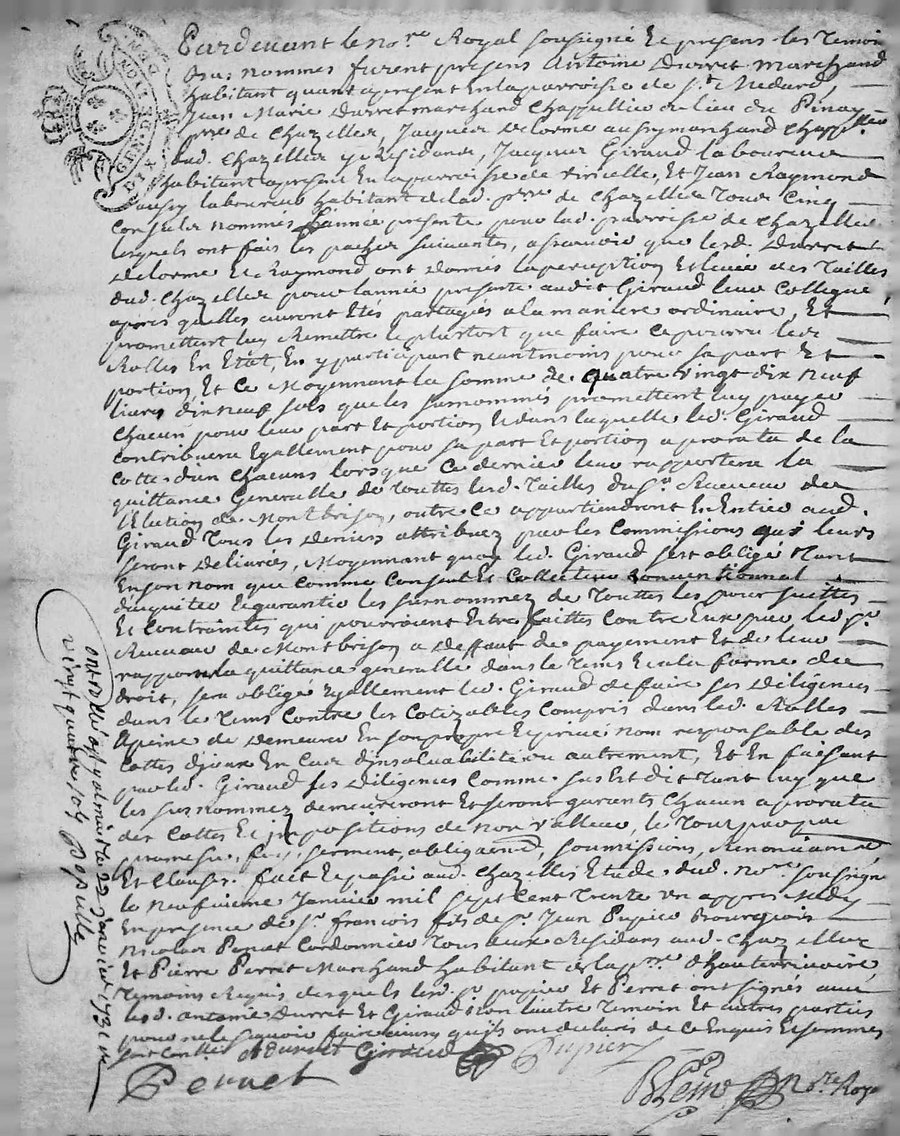 GEN. DE LION
DIX DEN
Pardevant le no.re Royal soussigné Et presens les Temoin
bas nommés furent presens Antoine Durret marchand
habitant quant apresent En la parroisse de S.t Medard,
Jean Marie Durret marchand Chappellier du lieu du Pinay
p.rre de Chazelles, Jacques Delorme aussy marchand Chapp.llier
dud. Chazelles y Residant, Jacques Giraud laboureur
habitant apresent En la parroisse de Viricelle, Et Jean Raymond
aussy laboureur habitant de lad. p.rre de Chazelles Tous Cinq
Consuls nommés l'année presente pour lad. parroisse de Chazelles
lesquels ont fait les pactes suivantes, a scavoir que lesd. Durret
Delorme Et Raymond ont donnés la perception Et levée des Tailles
dud. Chazelles pour l'année presente audit Giraud leur Collegue,
aprés quelles auront Etés partagées a la maniere ordinaire, Et
promettent luy Remettre le plustost que faire ce pourra les
Rolles En Etat, En y participant neantmoins pour sa part Et
portion, Et Ce Moyennant la somme de quatre vingt dix neuf
livres dix neuf sols que les surnommés promettent luy payer
chacun pour leur part Et portion Et dans laquelle led. Giraud
contribuera Egallement pour sa part Et portion a prorata de la
Cotte d'un chacuns lorsque Ce dernier leur rapportera la
quittance Generalle de Touttes lesd. Tailles du S.r Receveur de
l'Election de Montbrison, outre ce appartiendront En Entier aud.
Giraud Tous les deniers attribuez par les Commissions qui leurs
seront delivrés, Moyennant quoy led. Giraud s'est obligé Tant
En son nom que comme Consul Et Collecteur conventionnel
d'aquiter Et garantir les surnommez de Touttes les poursuittes
Et Contraintes qui pourroient Estre faittes Contre Eux par led. S.r
Receveur de Montbrison a deffaut de payement Et de leur
rapporter la quittance generalle dans le Tems Et a la forme du
droit, sera obligé Egallement led. Giraud de faire ses diligences
dans le Tems contre les Cotizables Compris dans lesd. Rolles
A peine de demeurer En son propre Et privé nom responsable des
Cottes d'iceux En Cas d'insolvabilité ou autrement, Et En faisant
par led. Giraud ses diligences Comme sus Est dit Tant luy que
les surnommez demeureront Et seront garants chacun a prorata
des Cottes Et impositions de non valleur, le Tout par
promesse, foy, serment, obligaons, soumissions, Renonciaons
Et Clauses. fait Et passé aud. Chazelles Etude dud. no.re soussigné
le neufvieme Janvier mil sept Cent Trente un appres Midy
En presence de S.r françois fils de S.r Jean Pupier Bourgeois
Nicolas Ponat Cordonnier Tous deux Residans aud. Chazelles
Et Pierre Perret Marchand habitant de la p.rre d'hauterivoire,
Temoins Requis desquels led. S.r pupier Et Perret ont signés avec
lesd. Antoine Durret Et Giraud Non l'autre Temoin Et autres parties
pour ne le scavoir faire ainsy qu'ils ont declarés de Ce Enquis Et sommés
A Durret Giraud Pupier
Perret
no.re Royal
Controllé a S.t galmier le 22 Janvier 1731 r.
vingt quatre sols